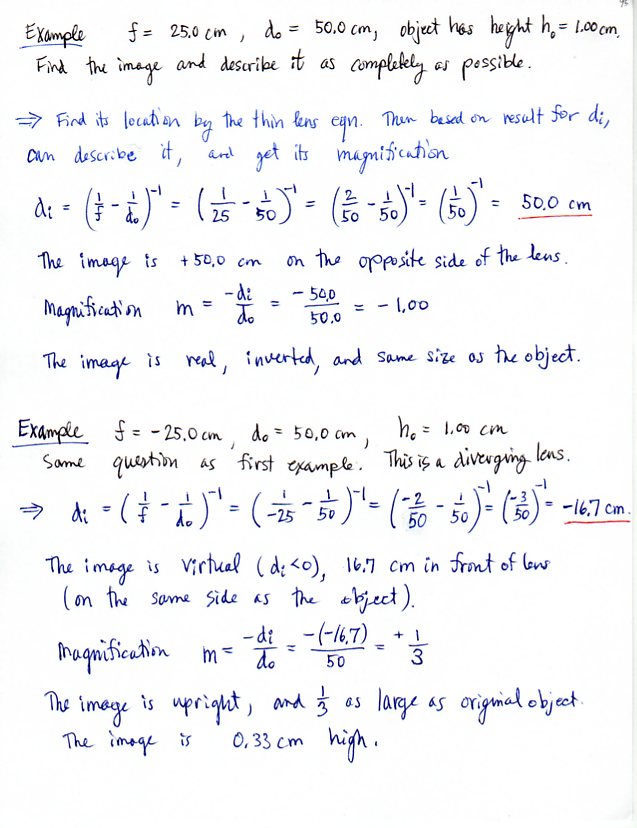 Example f = 25.0 cm, do = 50.0 cm, object has height ho = 1.00 cm.
Find the image and describe it as completely as possible.
⇒ Find its location by the thin lens eqn. Then based on result for di,
can describe it, and get its magnification
di = (1/f - 1/do)^-1 = (1/25 - 1/50)^-1 = (2/50 - 1/50)^-1 = (1/50)^-1 = 50.0 cm
The image is +50.0 cm on the opposite side of the lens.
Magnification m = -di/do = -50.0/50.0 = -1.00
The image is real, inverted, and same size as the object.
Example f = -25.0 cm, do = 50.0 cm, ho = 1.00 cm
Same question as first example. This is a diverging lens.
⇒ di = (1/f - 1/do)^-1 = (1/-25 - 1/50)^-1 = (-2/50 - 1/50)^-1 = (-3/50)^-1 = -16.7 cm.
The image is virtual (di<0), 16.7 cm in front of lens
(on the same side as the object).
Magnification m = -di/do = -(-16.7)/50 = +1/3
The image is upright, and 1/3 as large as original object.
The image is 0.33 cm high.